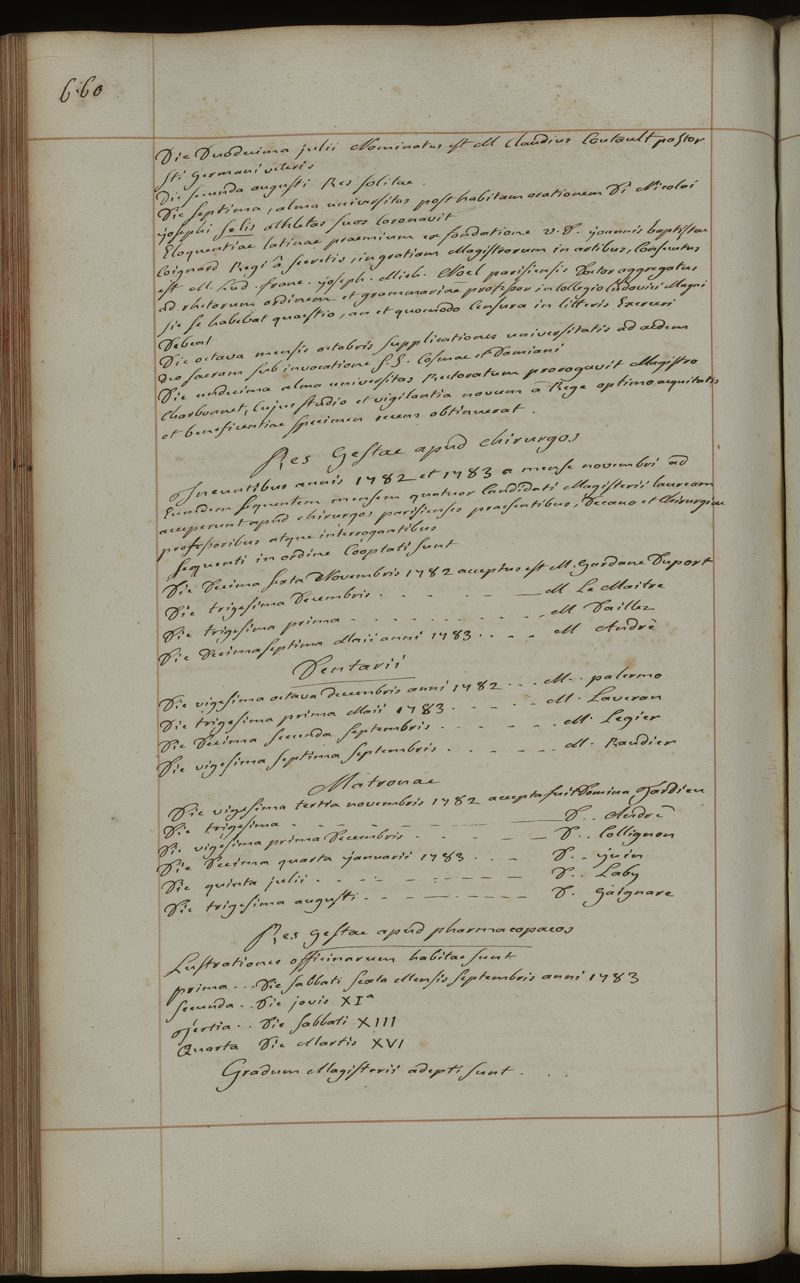 660
Die Duodecima julii Nominatus est M Claudius Coutault pastor
Sti Germani veteris
Die secunda augusti Res solitae.
Die septima, alma universitas post habitam orationem D. Nicolai
josephi Selis athletas suos Coronavit
Eloquentiae latinae praemium ex fondatione v.D. joannis baptistae
Coignard Regi â secretis, in gratiam Magistrorum in artibus, Consecutus
est M. Lud. franc. joseph. Mich. Noel parisiensis Doctor aggregatus
ad rhetorum ordinem et grammaticae professor in Collegio Ludovici Magni
sic se habebat quaestio, an et quomodo Censura in litteris Exerceri
Debeat
Die octava mensis octobris supplicationes universitatis ad aedem
deo sacram sub invocatione S.S. Cosmae et Damiani
Die undecima alma universitas Rectoratum prorogavit Magistro
Charbonnet, Cujus studio et vigilantia novum â Rege optimo aequitatis
et beneficentiae specimen recens obtinuerat.
Res Gestae apud chirurgos
Ineuntibus annis 1782 et 1783 a mense novembri ad
Eumdem sequentem mensem quatuor Candidati Magisterii lauream
acceperunt apud chirurgos parisienses praesentibus, Decano et Chirurgiae
professoribus atque interrogantibus
Sequenti in ordine Cooptati sunt
Die Decima sexta Novembris 1782 acceptus est M. Gardane Duport
Die trigesima Decembris . . . . . M Le Maitre
Die trigesima prima . . . . . . . . M Dailliez
Die Decima septima Maii anni 1783 . . . . M André
Dentarii
Die vigesima octava decembris anni 1782 . . . M. palermo
Die trigesima prima Maii 1783 . . . . . M. Laveran
Die Decima secunda septembris . . . . . M. Legier
Die vigesima septima septembris . . . . . M. Baudier
Matronae
Die vigesima tertia novembris 1782 accepta fuit Domina Tardieu
Die trigesima . . . . . D. . André
Die vigesima prima Decembris . . . . . D. . Collignon
Die Decima quarta januarii 1783 . . . . D. . juin
Die quinta julii . . . . . . . D. . Laby
Die trigesima augusti . . . . . . . D. Gaignare
Res Gestae apud pharmacopaeos
Lustrationes officinarum habitae sunt
prima . . . Die sabbati sexta Mensis septembris anni 1783
secunda . . Die jovis XIa
Tertia . . Die sabbati XIII
Quarta Die Martis XVI
Gradum Magisterii adepti sunt . . .